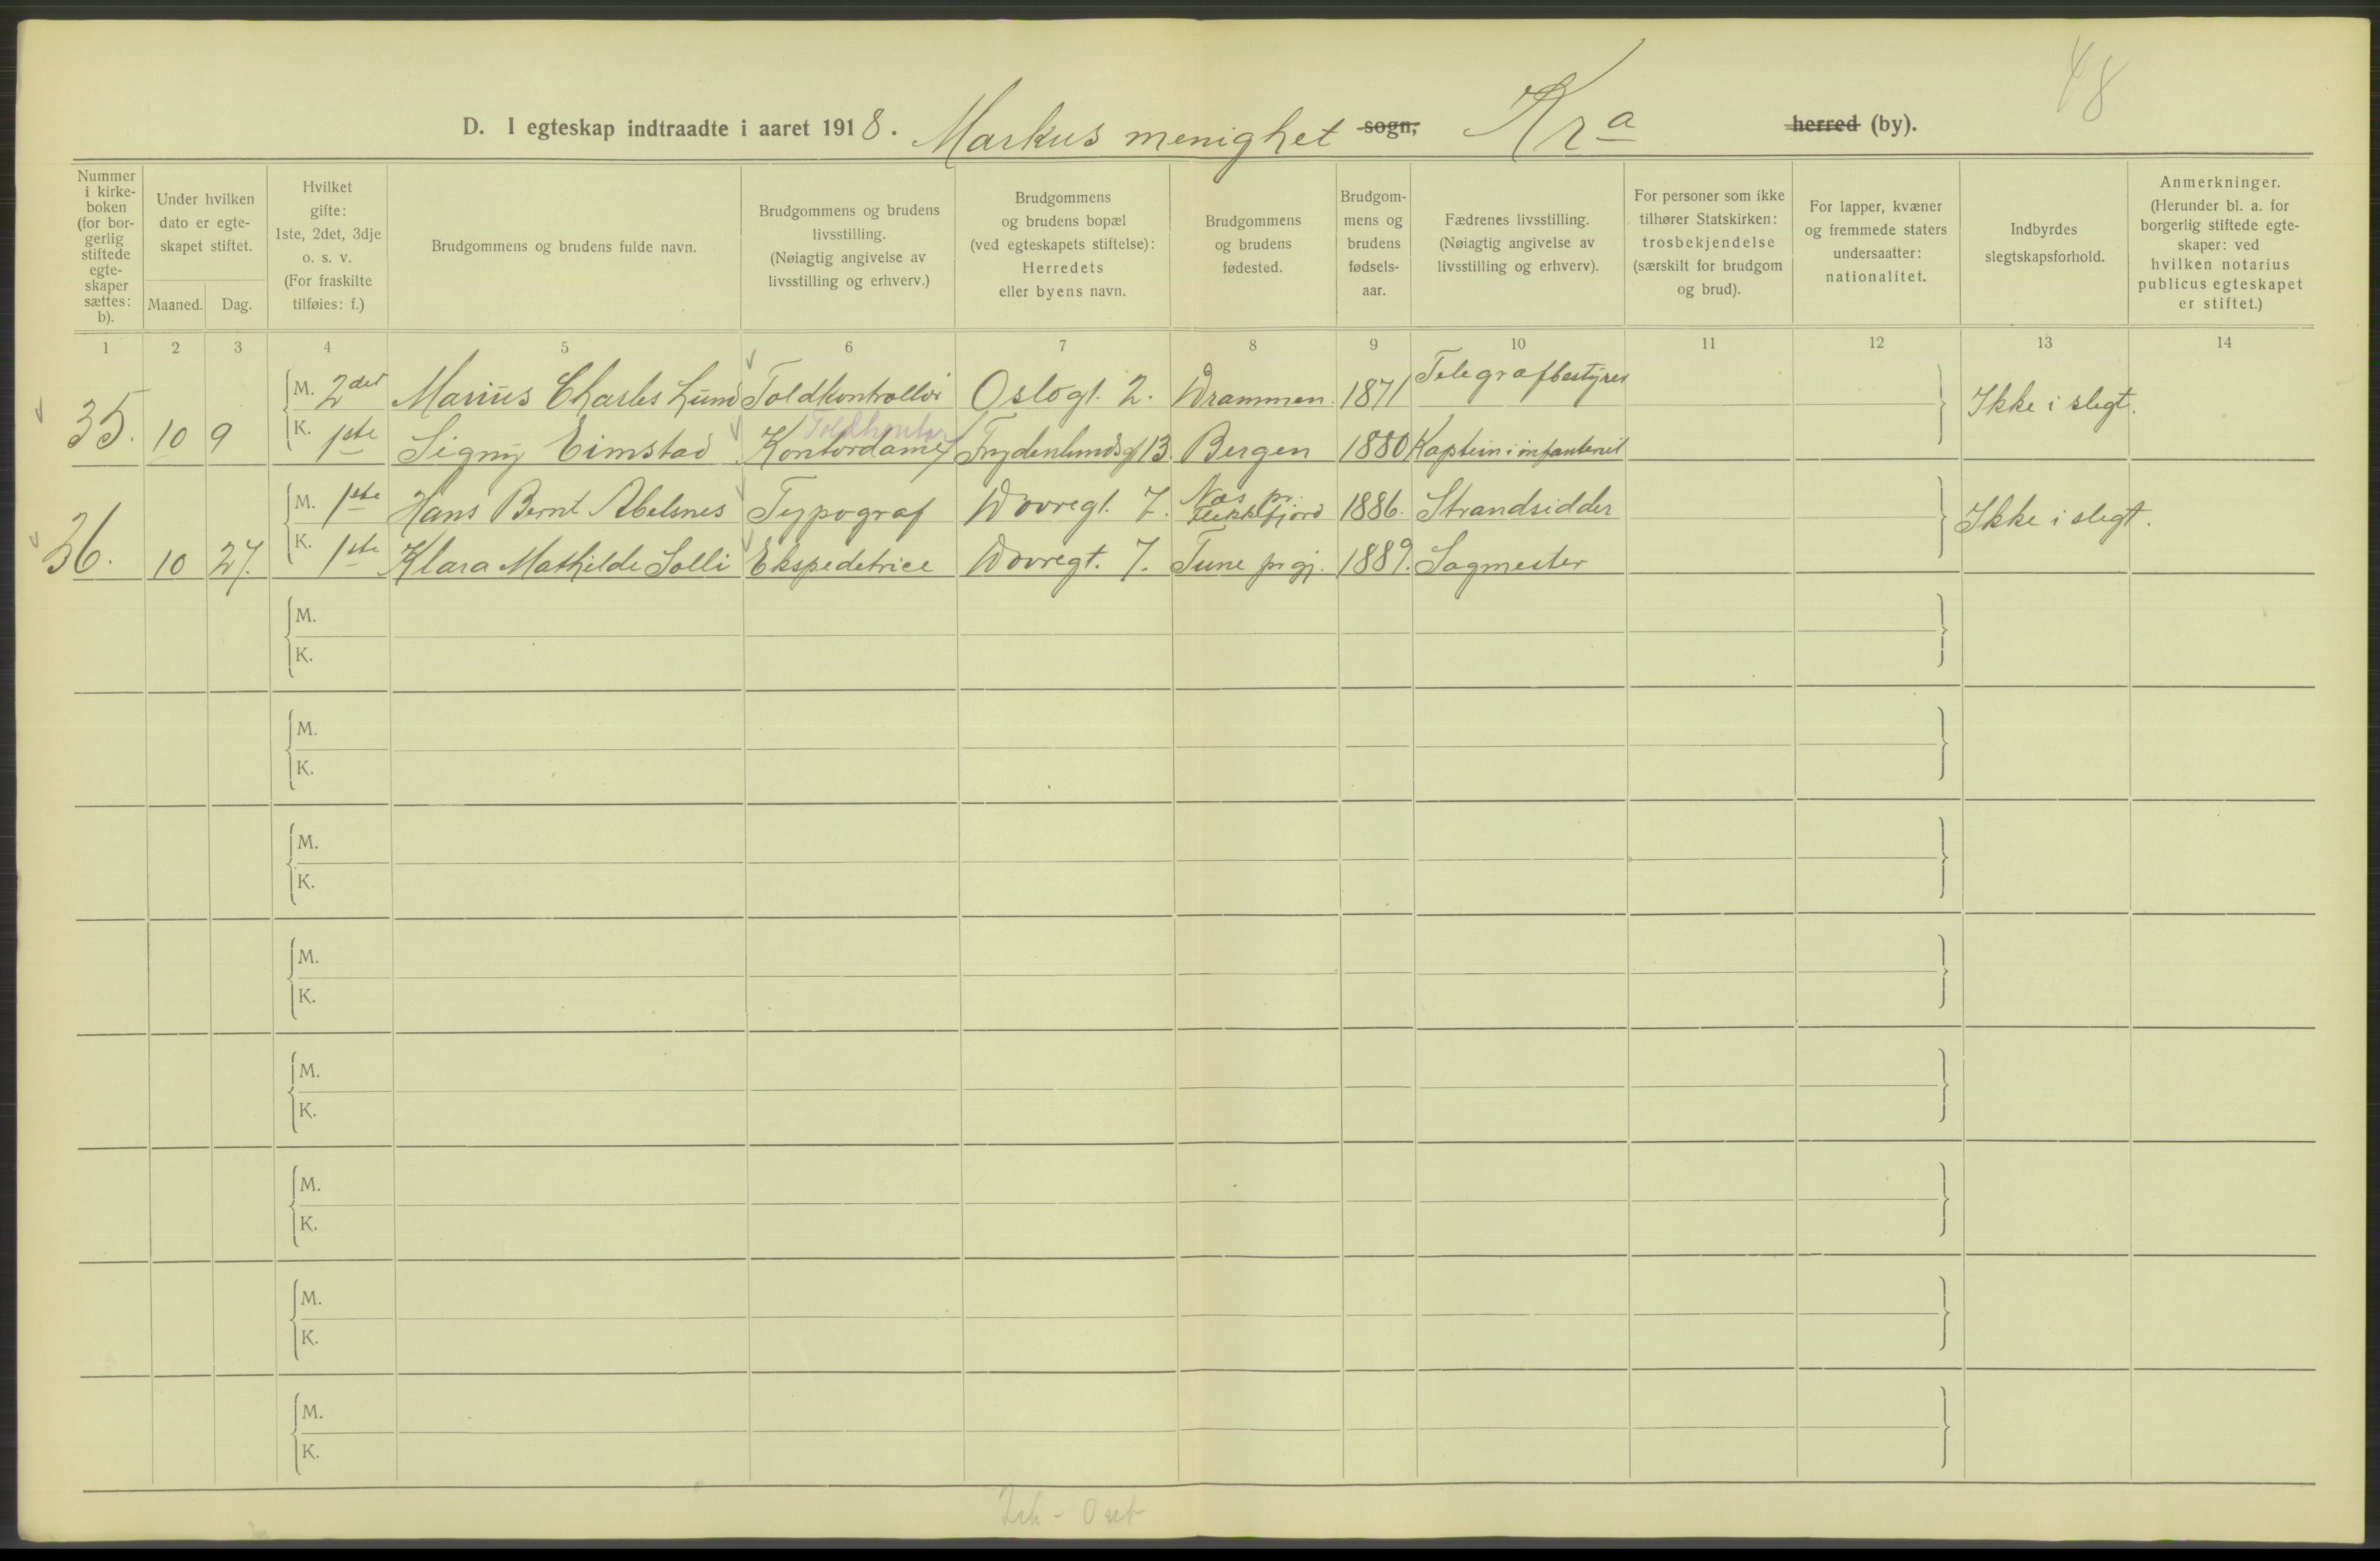 48
D. I egteskap indtraadte i aaret 1918. Markus menighet sogn, Kra herred (by).
Nummer i kirke-boken (for bor-gerlig stiftede egte-skaper sættes: b).
Under hvilken dato er egte-skapet stiftet.
Maaned. Dag.
Hvilket gifte: 1ste, 2det, 3dje o. s. v. (For fraskilte tilføies: f.)
Brudgommens og brudens fulde navn.
Brudgommens og brudens livsstilling. (Nøiagtig angivelse av livsstilling og erhverv.)
Brudgommens og brudens bopæl (ved egteskapets stiftelse): Herredets eller byens navn.
Brudgommens og brudens fødested.
Brudgom-mens og brudens fødsels-aar.
Fædrenes livsstilling. (Nøiagtig angivelse av livsstilling og erhverv).
For personer som ikke tilhører Statskirken: trosbekjendelse (særskilt for brudgom og brud).
For lapper, kvæner og fremmede staters undersaatter: nationalitet.
Indbyrdes slegtskapsforhold.
Anmerkninger. (Herunder bl. a. for borgerlig stiftede egte-skaper: ved hvilken notarius publicus egteskapet er stiftet.)
1 2 3 4 5 6 7 8 9 10 11 12 13 14
M. 2det Marius Charles Lund Toldkontrollør Oslogt. 2. Drammen. 1871 Telegrafbestyrer
Ikke i slegt.
Toldkontor
35. 10 9 K. 1ste Signy Eimstad Kontordame Frydenlundsgt 13. Bergen 1880 Kaptein i infanteriet
M. 1ste Hans Bernt Abelsnes Typograf Dovregt. 7. Nes pr. Flekkefjord 1886. Strandsidder
Ikke i slegt.
36. 10 27. K. 1ste Klara Mathilde Solli Ekspeditrice Dovregt. 7. Tune prgj. 1889. Sagmester
M.
K.
M.
K.
M.
K.
M.
K.
M.
K.
M.
K.
M.
K.
M.
K.